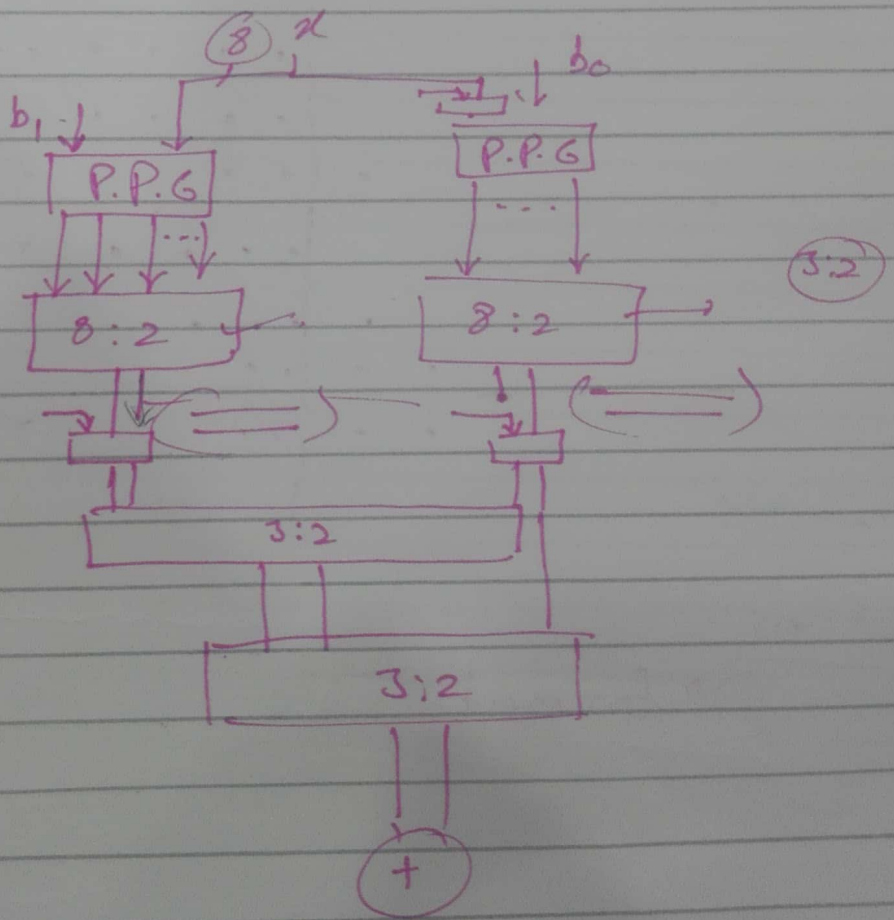 8 x
b₁ b₀
P.P.G P.P.G
8:2 8:2 3:2
3:2
3:2
+